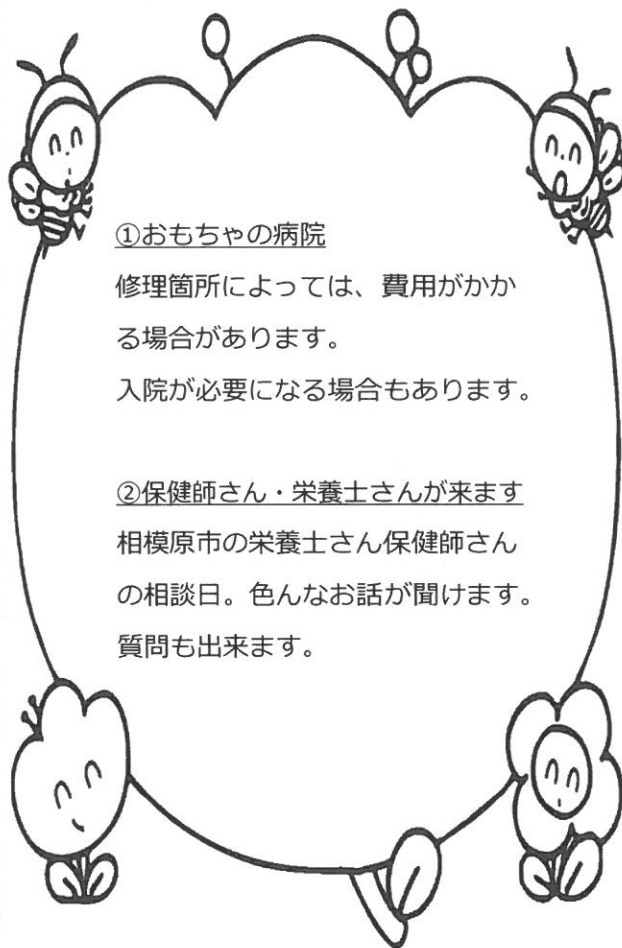 ①おもちゃの病院
修理箇所によっては、費用がかか
る場合があります。
入院が必要になる場合もあります。
②保健師さん・栄養士さんが来ます
相模原市の栄養士さん保健師さん
の相談日。色んなお話が聞けます。
質問も出来ます。